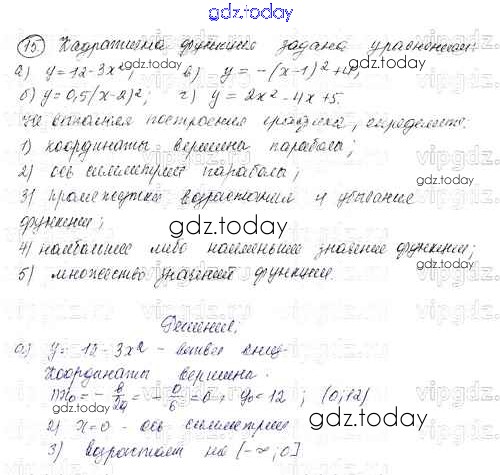 gdz.today
15) Квадратична функция задана уравнением:
а) y = 12 - 3x²; в) y = -(x-1)² + 4;
б) y = 0,5(x-2)²; г) y = 2x² - 4x + 5.
Не выполняя построения графика, определите:
1) координаты вершины параболы;
2) ось симметрии параболы;
3) промежутки возрастания и убывания
функции;
4) наибольшее либо наименьшее значение функции;
5) множество значений функции.
Решение:
а) y = 12 - 3x² - ветви вниз
Координаты вершины.
x₀ = -b/2a = -0/6 = 0, y₀ = 12; (0;12)
2) x = 0 - ось симметрии
3) возрастает на [-∞; 0]